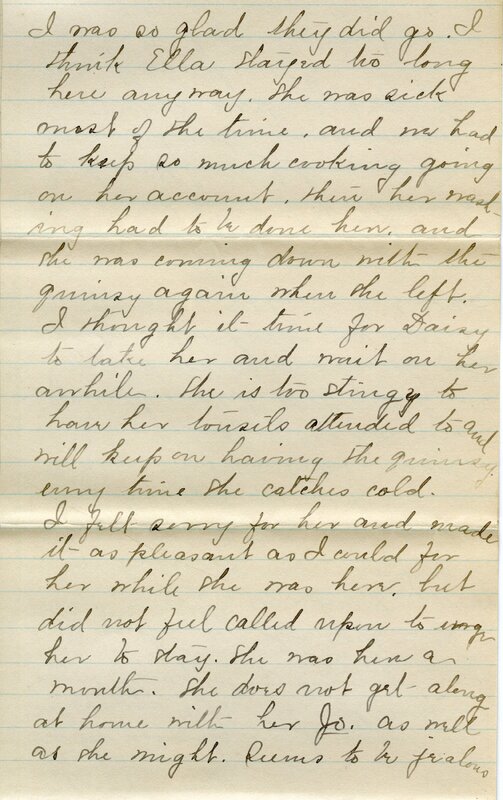 I was so glad they did go. I
think Ella stayed too long
here anyway. She was sick
most of the time, and we had
to keep so much cooking going
on her account, then her wash
ing had to be done here, and
she was coming down with the
quinsy again when she left.
I thought it time for Daisy
to take her and wait on her
awhile. She is too stingy to
have her tonsils attended to and
will keep on having the quinsy
every time she catches cold.
I felt sorry for her and made
it as pleasant as I could for
her while she was here, but
did not feel called upon to urge
her to stay. She was here a
month. She does not get along
at home with her Jo. as well
as she might. Seems to be jealous